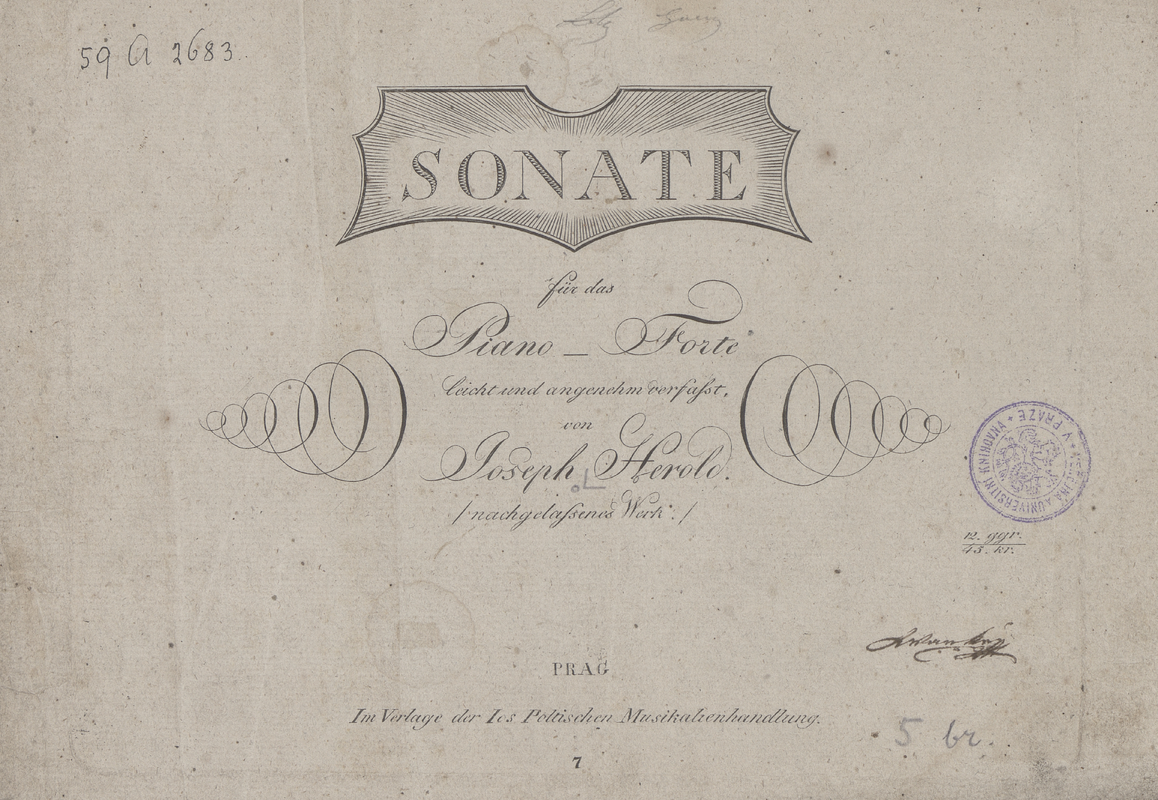 59 A 2683
SONATE
für das
Piano _ Forte
leicht und angenehm verfaſst,
von
Joseph Herold.
/: nachgelaſsenes Werk :/
VEŘEJNÁ A UNIVERSITNÍ KNIHOVNA V PRAZE
12. ggr.
45. kr.
PRAG
Im Verlage der Ios Poltischen Musikalienhandlung.
5 br.
7